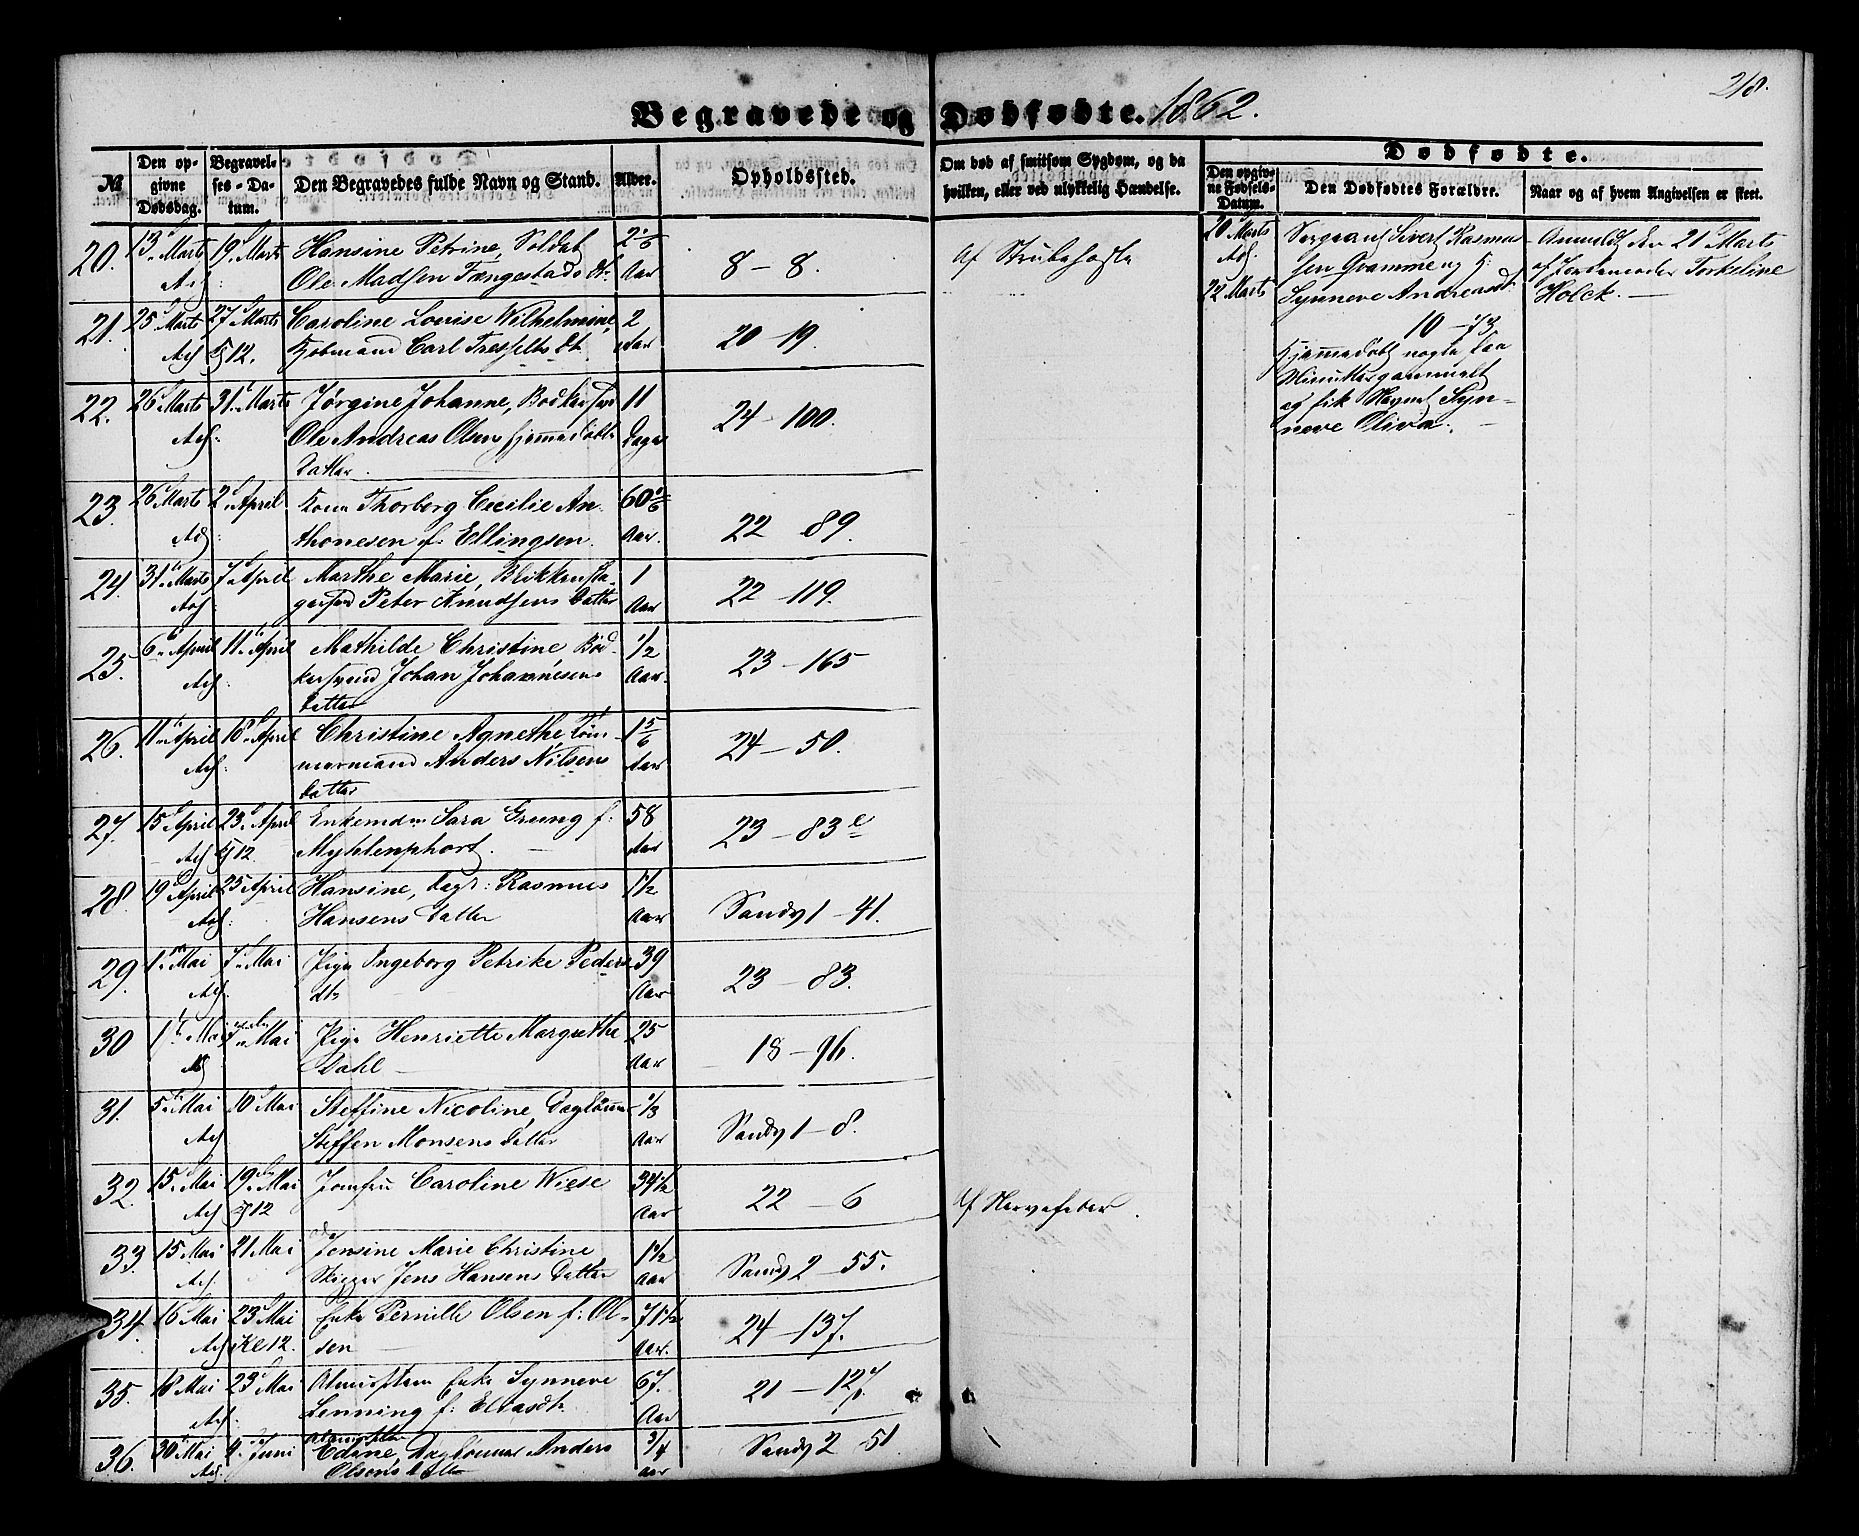 218.
Begravede og Dødfødte. 1862.
№
Den op-
givne
Dødsdag.
Begravel-
ses-Da-
tum.
Den Begravedes fulde Navn og Stand.
Alder.
Opholdssted.
Om død af smitsom Sygdom, og da
hvilken, eller ved ulykkelig Hændelse.
Dødfødte.
Den opgiv-
ne Fødsels-
Datum.
Den Dødfødtes Forældre.
Naar og af hvem Angivelsen er skeet.
20. 13 Marts 19 Marts Hansine Petrine, Soldat 2 5/6
Ole Madsen Tængestads Dtr Aar 8 – 8. Af Strubehoste
21. 25 Marts 27 Marts Caroline Louise Wilhelmine, 2
Kj 12. Kjøbmand Carl Tresselts Dt. Aar 20 – 19.
22. 26 Marts 31 Marts Jørgine Johanne, Bødkersvend 11
Ole Andreas Olsens hjemmedøbte Dage 24 – 100.
Datter.
23. 26 Marts 2 April Kone Thorborg Cecilie An- 60
thonesen f. Ellingsen. Aar. 22 89.
24. 31 Marts 7 April Marthe Marie, Blikkensla-
gersvd Peter Knudsens Datter 1 Aar 22 – 119.
25. 6 April 11 April Mathilde Christine Bød- 1/2
kersvend Johan Johannesens Aar. 23 – 165
Datter
26. 11 April 18 April Christine Agnethe Tøm- 1 5/6
mermand Anders Nilsens Aar 24 – 50.
Datter
27. 15 April 23 April Enkemdm Sara Grung f: 58
Kj 12. Myhlenphort. Aar 23 – 83 e
28. 19 April 25 April Hansine, Dagl: Rasmus 1 1/2
Hansens Datter Aar Sandv 1 – 41.
29. 1 Mai 7 Mai Pige Ingeborg Petrike Peders 39
dtr Aar 23 – 83.
30 1 Mai 7 Mai Pige Henriette Margrethe 25
Dahl Aar 18 – 96.
31. 5 Mai 10 Mai Steffine Nicoline, Daglønner 1/3
Steffen Monsens Datter Aar Sandv 1 – 8.
32. 15 Mai 19 Mai Jomfru Caroline Wiese 34 1/2
Kj 12 Aar 22 – 6 Af Nervefeber.
33. 15 Mai 21 Mai Jensine Marie Christine 1 1/2
Skipper Jens Hansens Datter Aar Sandv 2 – 55.
34. 16 Mai 23 Mai Enke Pernille Olsen f: Ol- 71 1/2
Kl 12. sen Aar. 24 – 137.
35. 18 Mai 23 Mai Almisslem Enke Synneve 67.
Lenning f: Eliasdtr. Aar 21 – 127
36. 30 Mai 4 Juni Edine, Daglønner Anders 3/4
Olsens Datter Aar Sandv 2 – 51
20 Marts
22 Marts
Sergeant Sivert Rasmus-
sen Gramme og H:
Synneve Andreasdt
10 – 73,
hjemmedøbt nogle faa
Minutter gammelt
og fik Navnet Syn-
neve Oliva.
Anmeldt den 21 Marts
af Jordemoder Torkeline
Holck. –